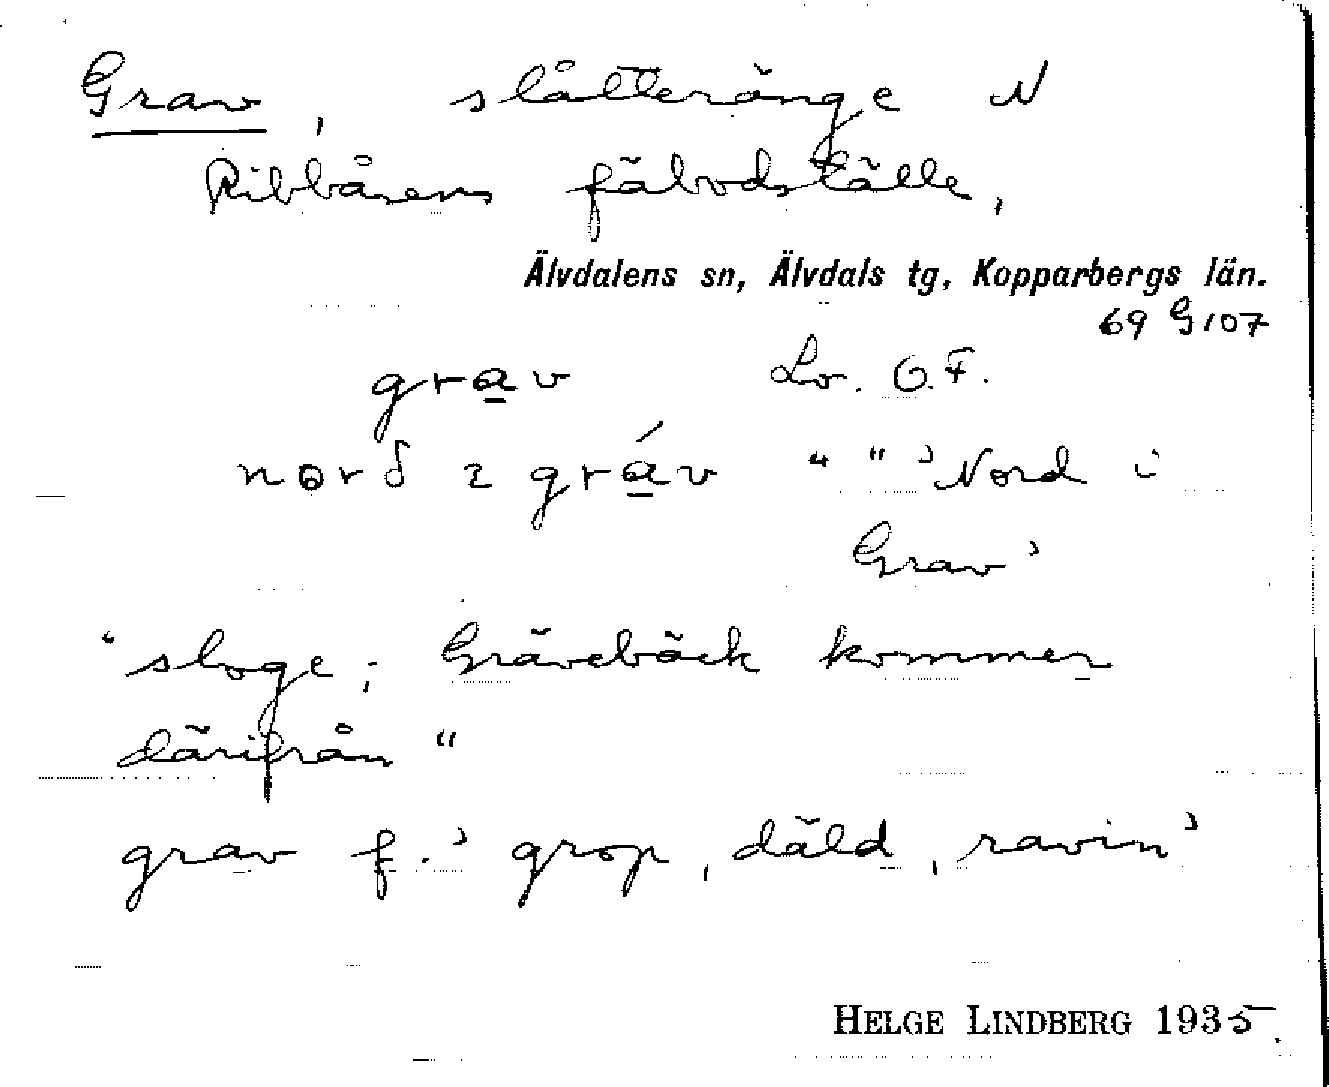 Grav, slåtteränge N
Ribbåsens fäbodställe,
Älvdalens sn, Älvdals tg, Kopparbergs län.
69 G 107
grav Lv. O.F.
norð ɪ gráv " " 'Nord i
Grav'
"sloge; Grävebäck kommer
därifrån"
grav f. 'grop, däld, ravin'
HELGE LINDBERG 1935.